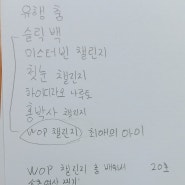 유행 춤
슬릭백
미스터빈 챌린지
첫눈 챌린지
하이디라오 나루토
홍박사 챌린지
WOP 챌린지 최애의 아이
WOP 챌린지 춤 배워서 20초